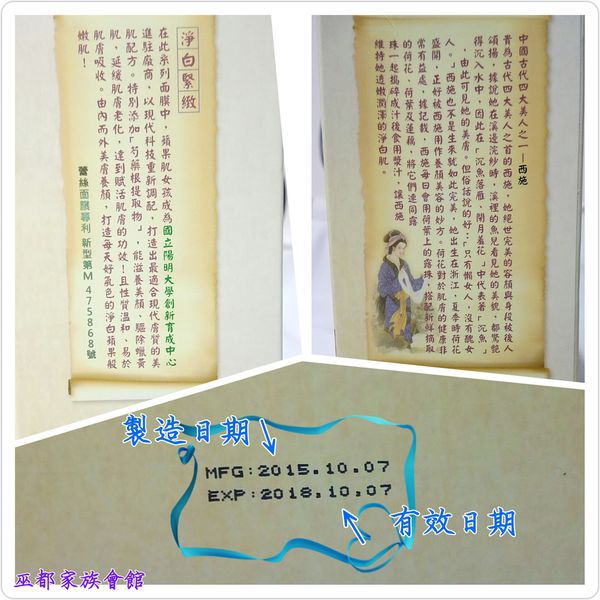 淨白緊緻
在此系列面膜中，蘋果肌女孩成為國立陽明大學創新育成中心
進駐廠商，以現代科技重新調配，打造出最適合現代膚質的美
肌配方。特別添加「芍藥根提取物」，能滋養美顏，驅除蠟黃
肌，延緩肌膚老化，達到賦活肌膚的功效！且性質溫和，易於
肌膚吸收。由內而外美膚養顏，打造每天好氣色的淨白蘋果般
嫩肌！
蕾絲面膜專利 新型第M 475868號
中國古代四大美人之一—西施
貴為古代四大美人之首的西施，她絕世完美的容顏與身段被後人
頌揚，據說她在溪邊浣紗時，溪裡的魚兒看見她的美貌，都驚艷
得沉入水中，因此在「沉魚落雁，閉月羞花」中代表著「沉魚」
由此可見她的美膚。但俗話說的好：「只有懶女人，沒有醜女
人。」西施也不是生來就如此完美，她出生在浙江，夏季時荷花
盛開，正好被西施用作養顏美容的妙方。荷花對於肌膚的健康非
常有益處，據記載，西施每日會用荷葉上的露珠，搭配新鮮摘取
的荷花、荷葉及蓮藕，將它們連同露
珠一起搗碎成汁後食用漿汁，讓西施
維持她透嫩潤澤的淨白肌。
製造日期
MFG:2015.10.07
EXP:2018.10.07
有效日期
巫都家族會館